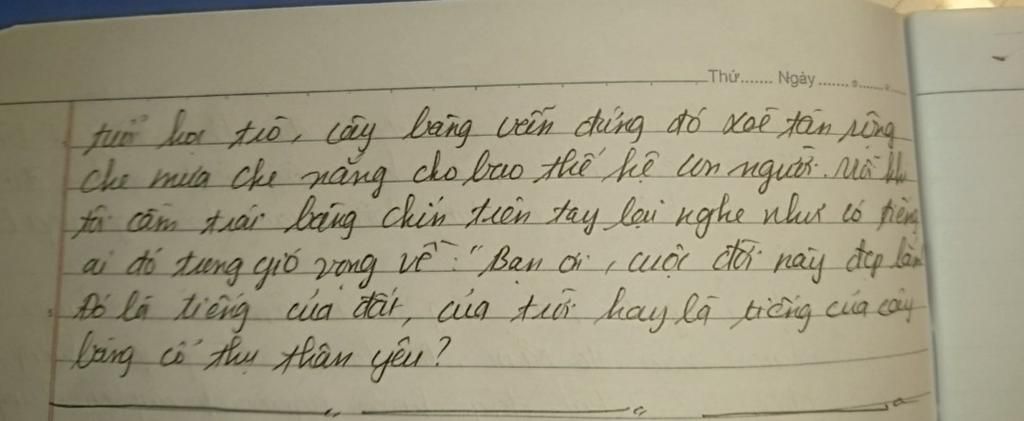 Thứ....... Ngày............
tuổi học trò, cây bàng vẫn đứng đó xoè tán rộng
che mưa che nắng cho bao thế hệ con người. Mỗi khi
tôi cầm trái bàng chín trên tay lại nghe như có tiếng
ai đó trong gió vọng về: "Bạn ơi, cuộc đời này đẹp lắm
Đó là tiếng của đất, của trời hay là tiếng của cây
bàng cổ thụ thân yêu?